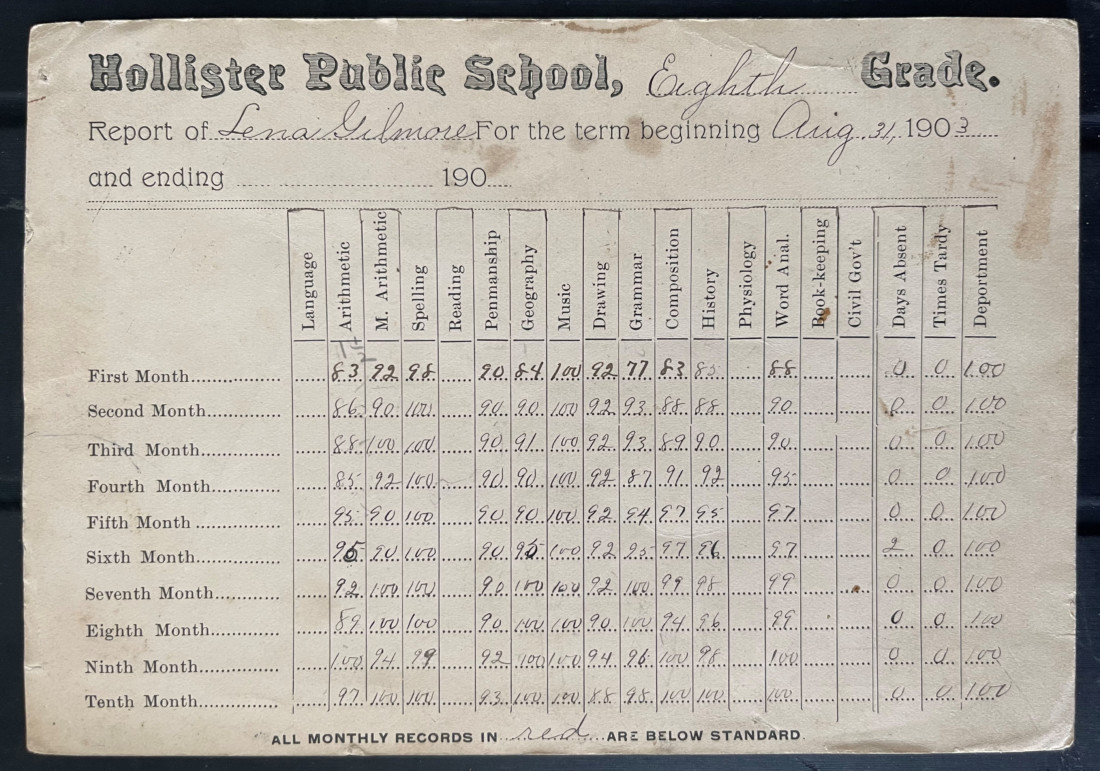 Hollister Public School, Eighth Grade.
Report of Lena Gilmore For the term beginning Aug. 31, 1903
and ending 190
Language Arithmetic M. Arithmetic Spelling Reading Penmanship Geography Music Drawing Grammar Composition History Physiology Word Anal. Book-keeping Civil Gov't Days Absent Times Tardy Deportment
First Month 83 92 98 90 84 100 92 77 83 85 88 0 0 100
Second Month 86 90 100 90 90 100 92 93 88 88 90 0 0 100
Third Month 88 100 100 90 91 100 92 93 89 90 90 0 0 100
Fourth Month 85 92 100 90 90 100 92 87 91 92 95 0 0 100
Fifth Month 95 90 100 90 90 100 92 94 97 95 97 0 0 100
Sixth Month 95 90 100 90 95 100 92 95 97 96 97 2 0 100
Seventh Month 92 100 100 90 100 100 92 100 99 98 99 0 0 100
Eighth Month 89 100 100 90 100 100 90 100 94 96 99 0 0 100
Ninth Month 100 94 99 92 100 100 94 96 100 98 100 0 0 100
Tenth Month 97 100 100 93 100 100 88 98 100 100 100 0 0 100
ALL MONTHLY RECORDS IN red ARE BELOW STANDARD.